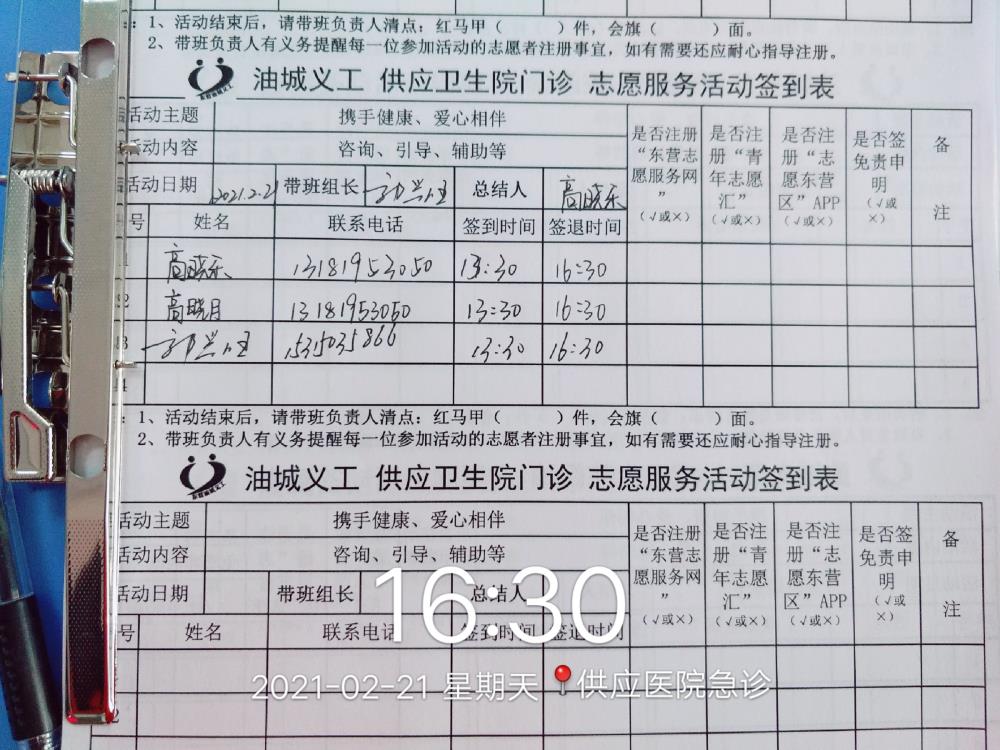 ：1、活动结束后，请带班负责人清点：红马甲（ ）件，会旗（ ）面。
2、带班负责人有义务提醒每一位参加活动的志愿者注册事宜，如有需要还应耐心指导注册。
油城义工 供应卫生院门诊 志愿服务活动签到表
活动主题 携手健康、爱心相伴 是否注册“东营志愿服务网”（√或×） 是否注册“青年志愿汇”（√或×） 是否注册“志愿东营区”APP（√或×） 是否签免责申明（√或×） 备注
活动内容 咨询、引导、辅助等
活动日期 2021.2.21 带班组长 总结人 高晓乐
号 姓名 联系电话 签到时间 签退时间
高晓乐 13181953050 13:30 16:30
高晓月 13181953060 13:30 16:30
13:30 16:30
：1、活动结束后，请带班负责人清点：红马甲（ ）件，会旗（ ）面。
2、带班负责人有义务提醒每一位参加活动的志愿者注册事宜，如有需要还应耐心指导注册。
油城义工 供应卫生院门诊 志愿服务活动签到表
活动主题 携手健康、爱心相伴 是否注册“东营志愿服务网”（√或×） 是否注册“青年志愿汇”（√或×） 是否注册“志愿东营区”APP（√或×） 是否签免责申明（√或×） 备注
活动内容 咨询、引导、辅助等
活动日期 带班组长 总结人
16:30
号 姓名 联系电话 签到时间 签退时间
2021-02-21 星期天 供应医院急诊